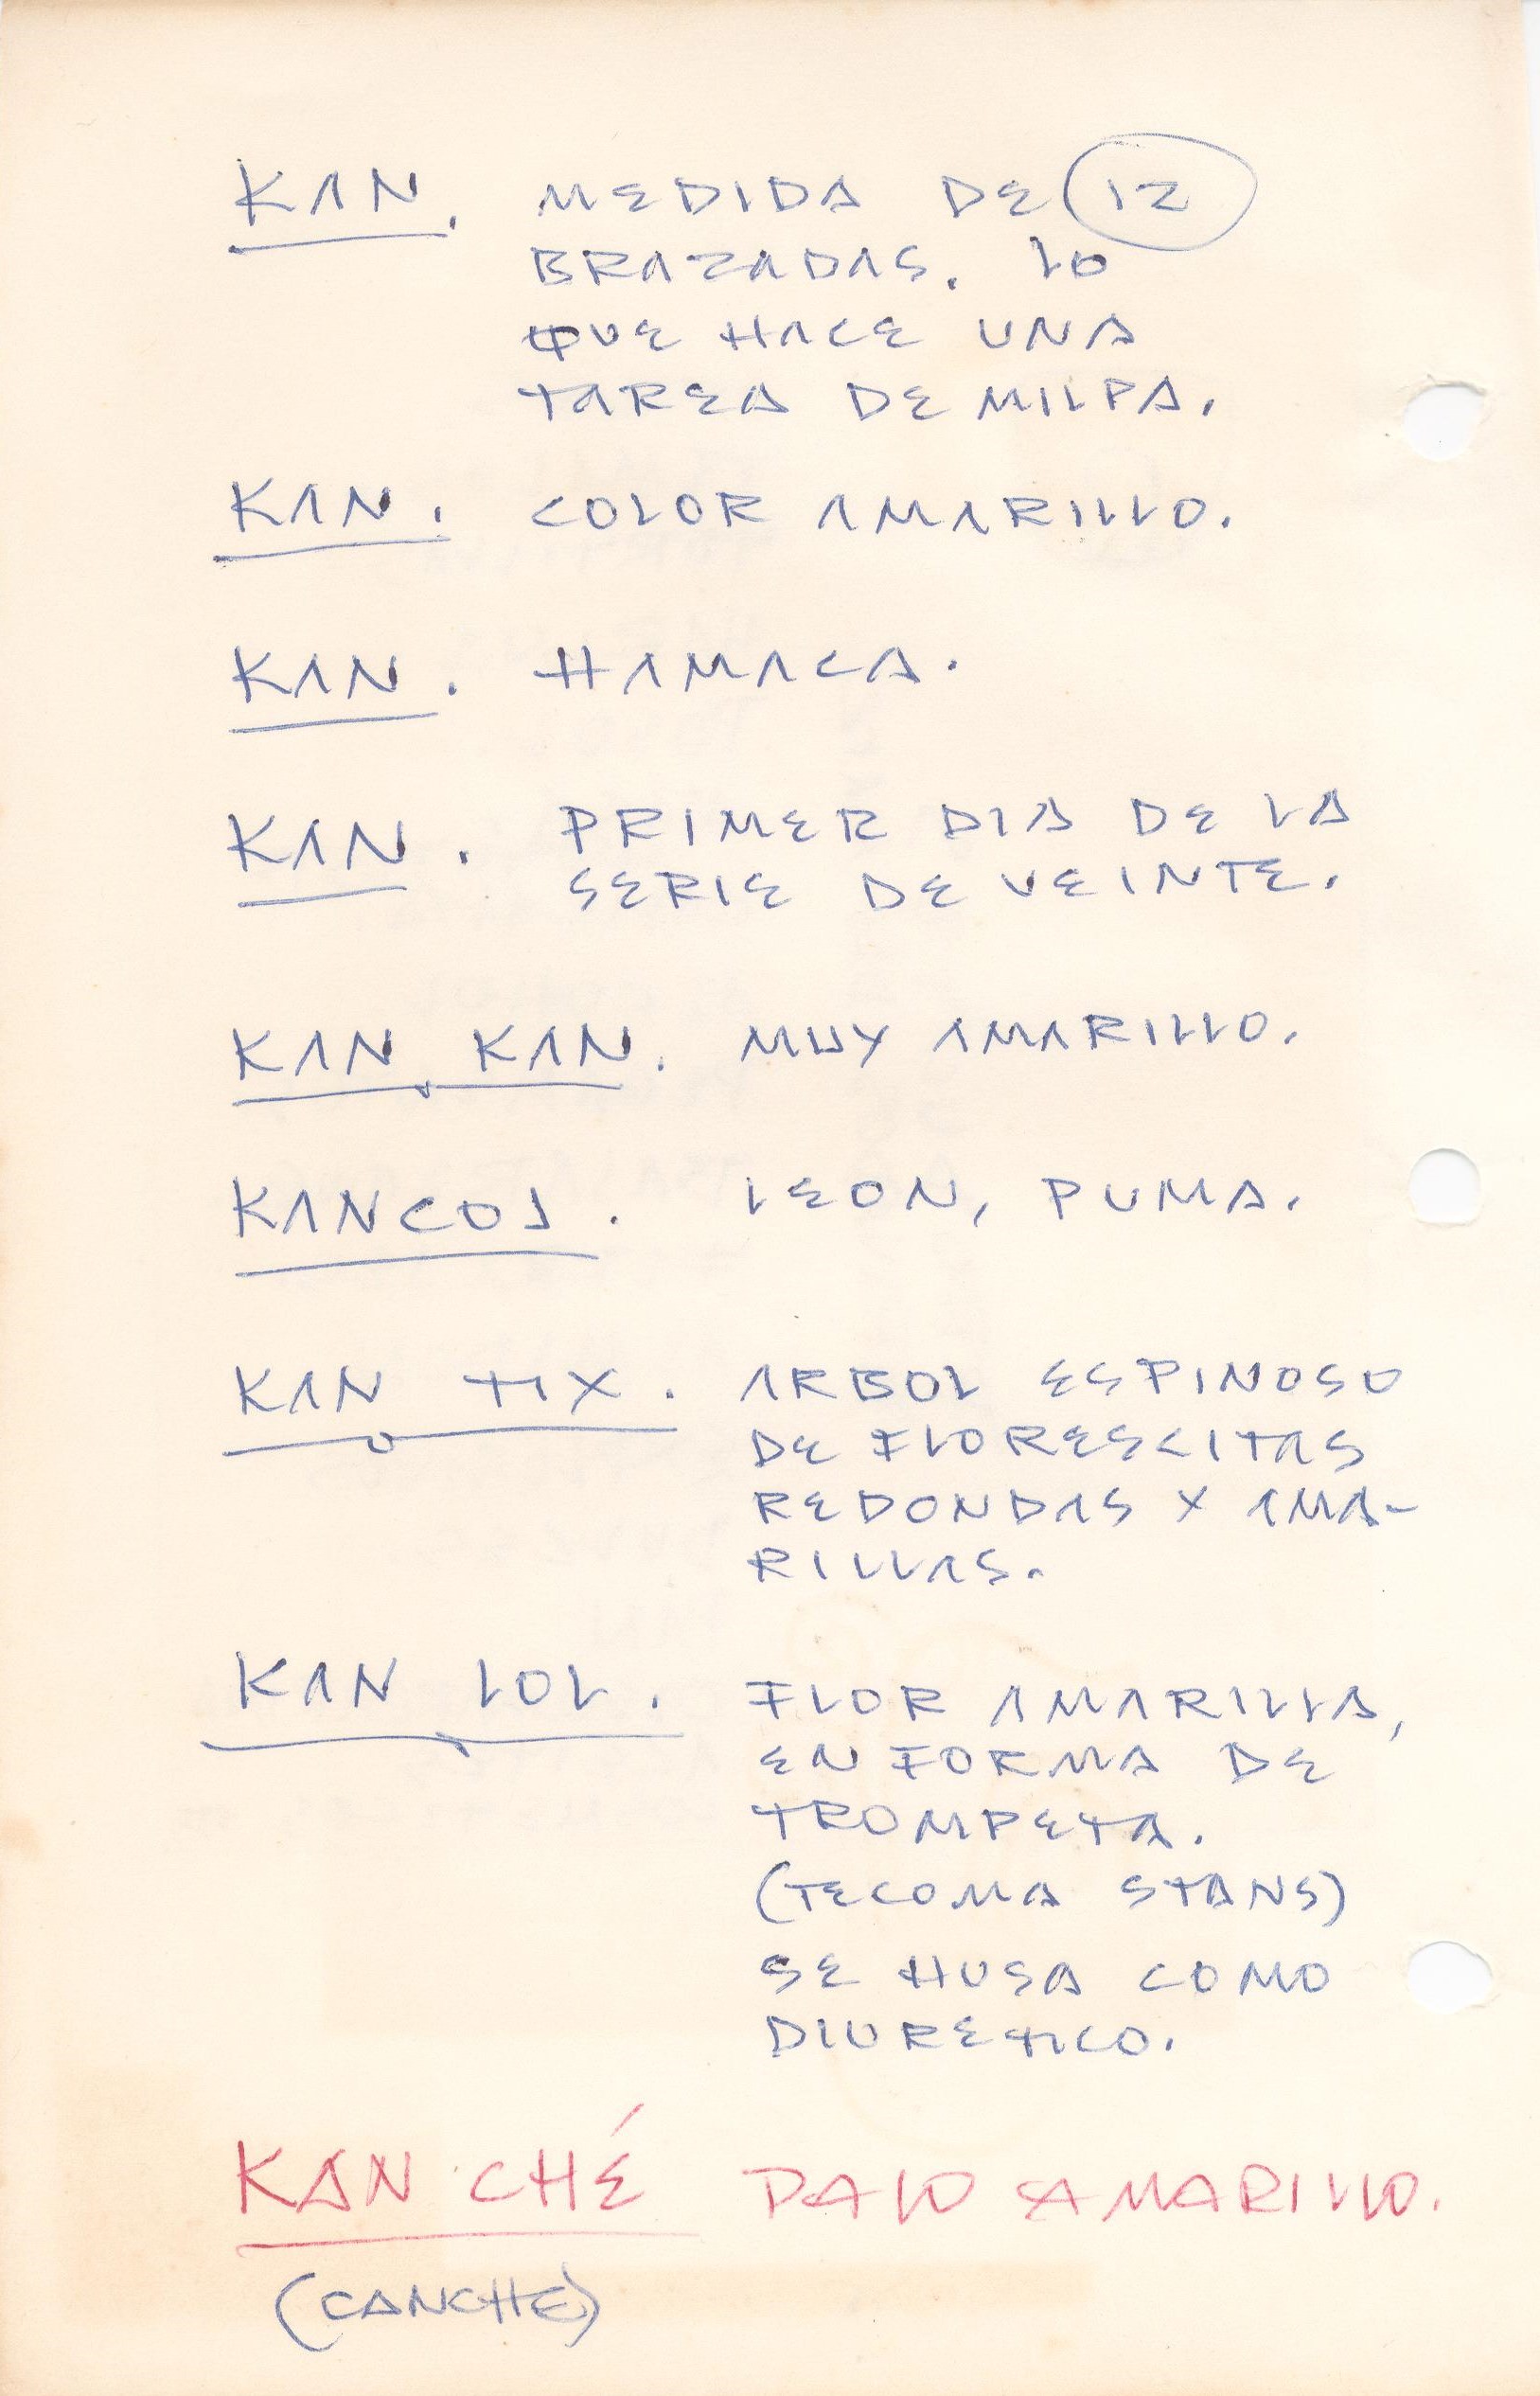 KAN. MEDIDA DE 12
BRAZADAS. LO
QUE HACE UNA
TAREA DE MILPA.
KAN. COLOR AMARILLO.
KAN. HAMACA.
KAN. PRIMER DIA DE LA
SERIE DE VEINTE.
KAN KAN. MUY AMARILLO.
KANCOJ. LEON, PUMA.
KAN TIX. ARBOL ESPINOSO
DE FLORESCITAS
REDONDAS Y AMA-
RILLAS.
KAN LOL. FLOR AMARILLA,
EN FORMA DE
TROMPETA.
(TECOMA STANS)
SE HUSA COMO
DIURETICO.
KAN CHÉ PALO AMARILLO.
(CANCHE)